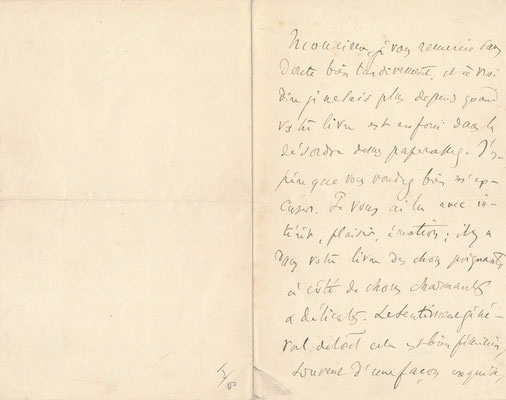 Monsieur, je vous remercie sans
doute bien tardivement, et à vrai
dire je ne sais plus depuis quand
votre livre est enfoui dans le
désordre de mes paperasses. J'es-
père que vous voudrez bien m'ex-
cuser. Je vous ai lu avec in-
térêt, plaisir, émotion ; il y a
dans votre livre des choses poignantes
à côté de choses charmantes
& délicates. Le sentiment géné-
ral de tout cela est bien féminin,
souvent d'une façon exquise,